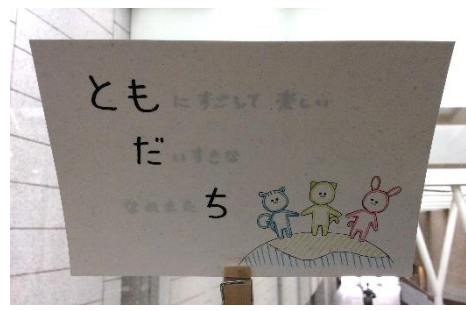 ともにすごして楽しい
だいすきな
なかまたち